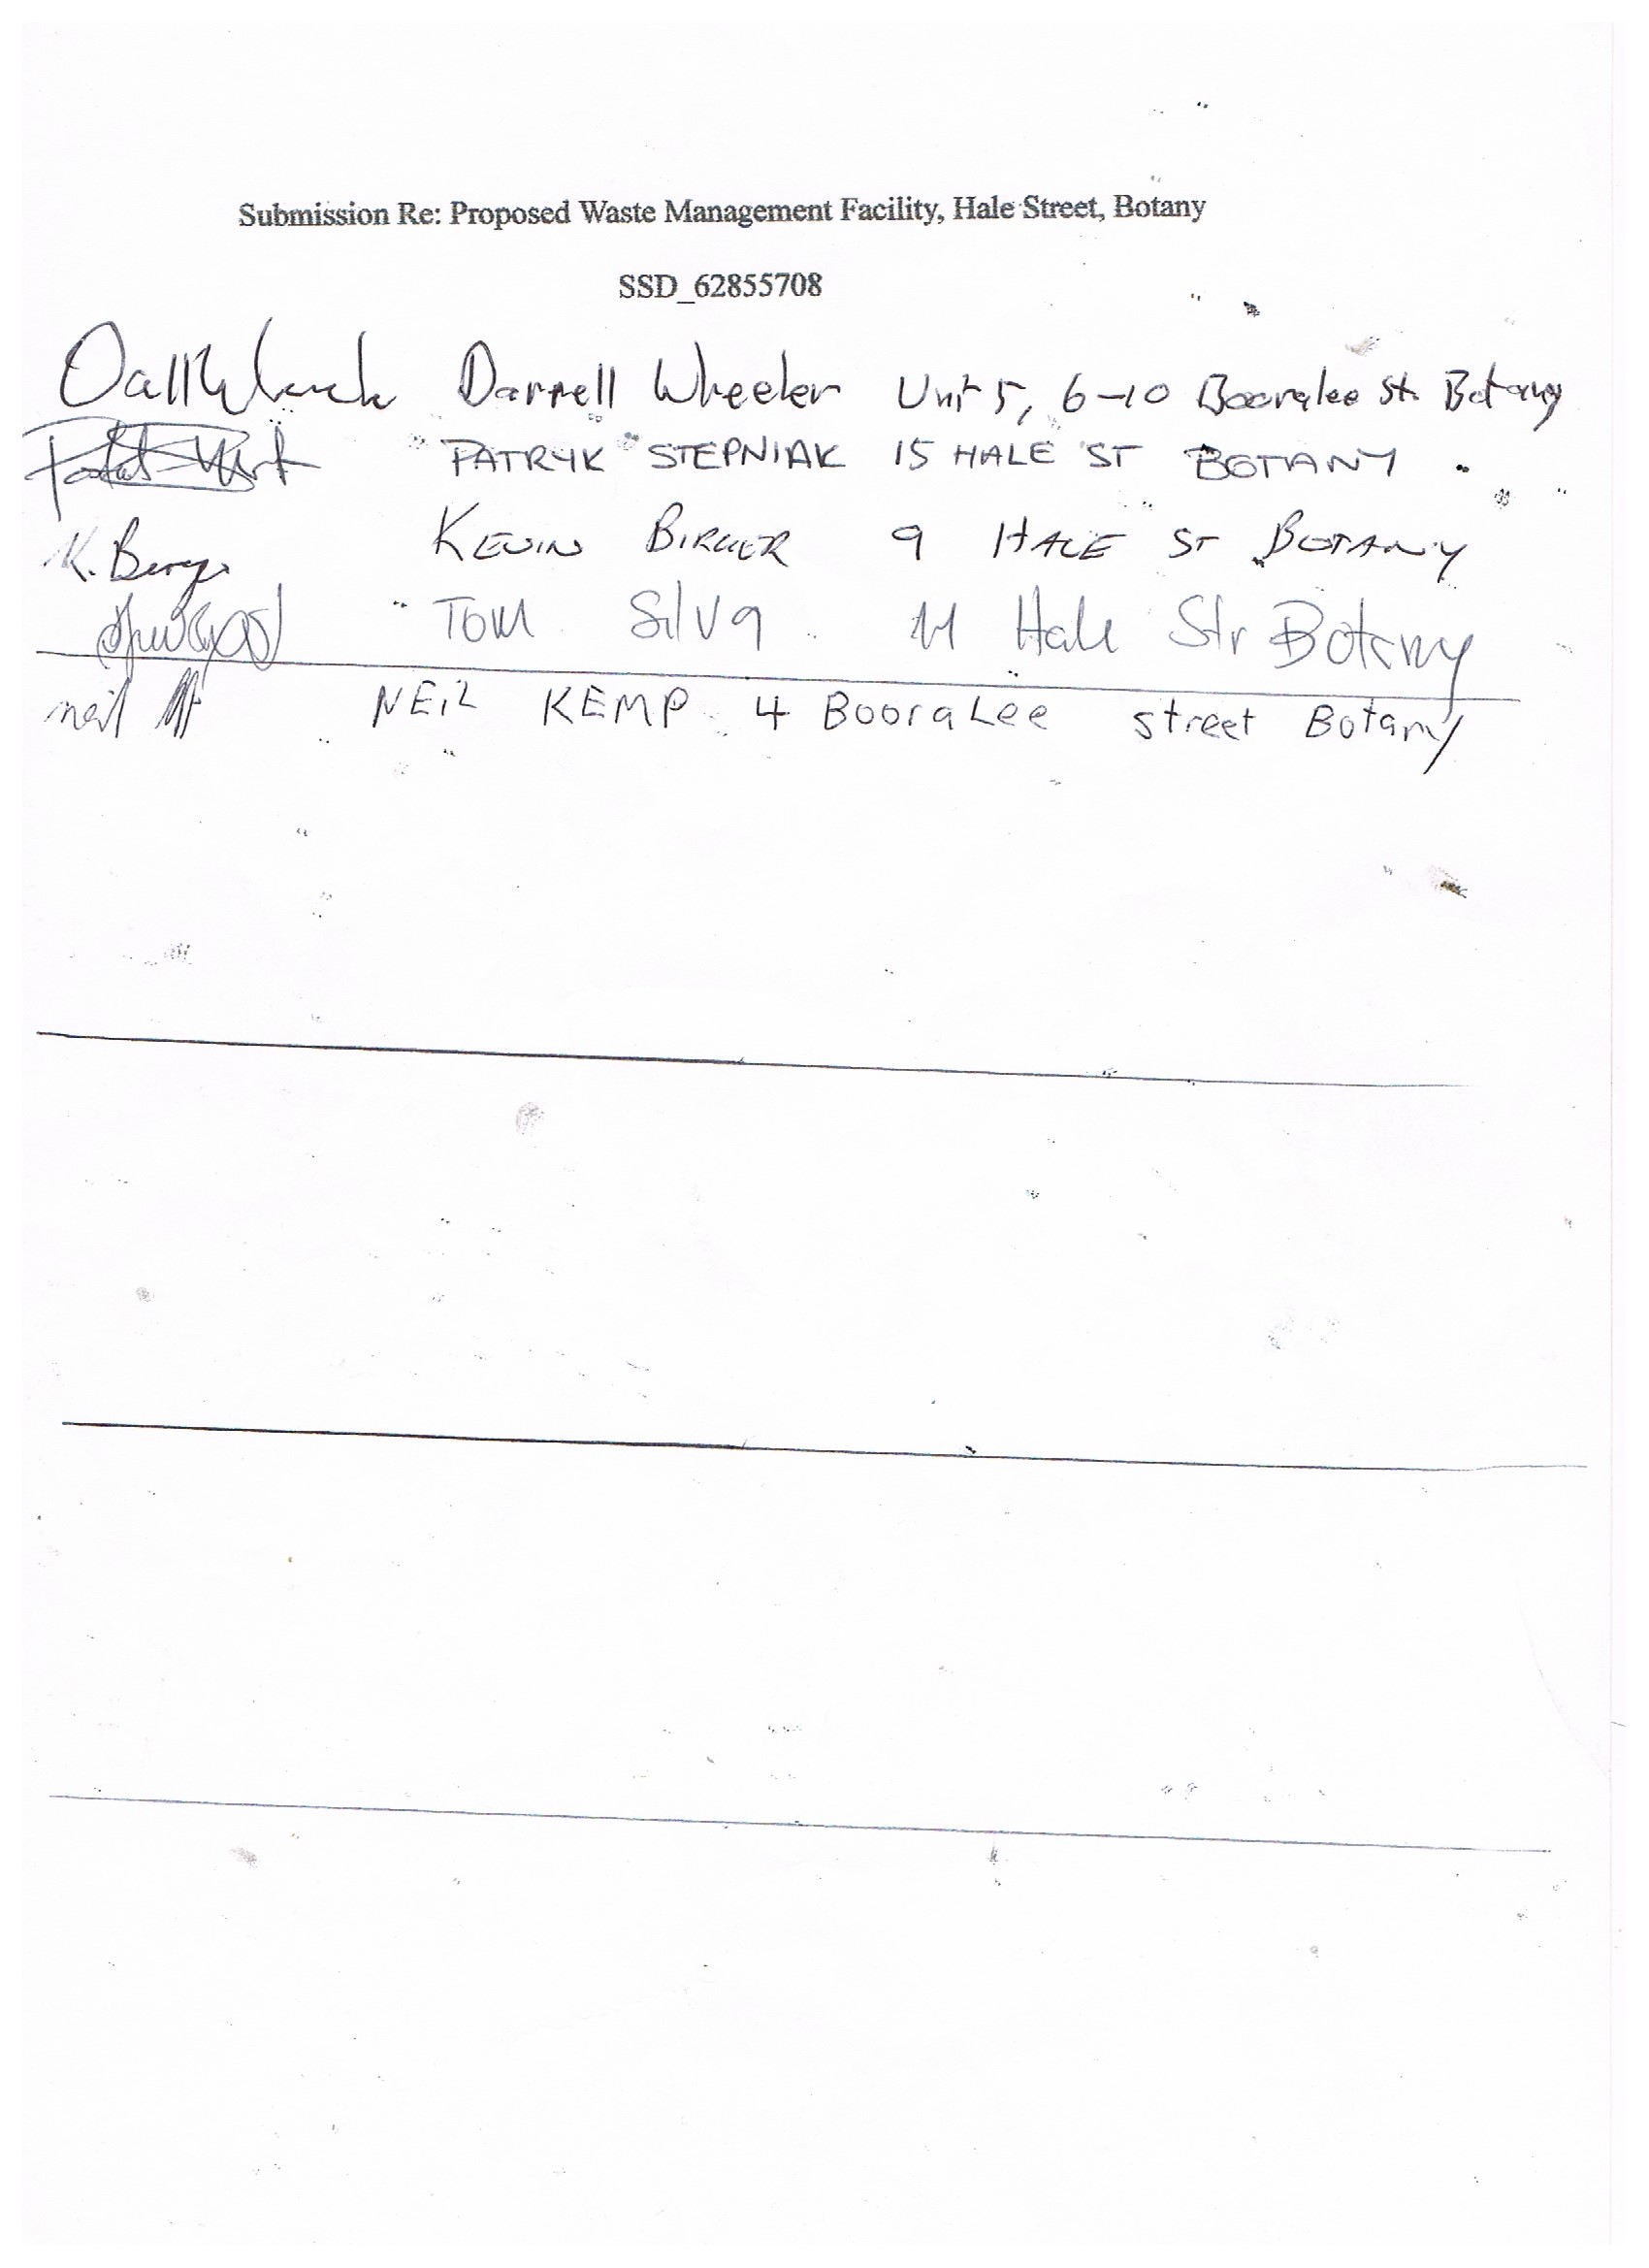 Submission Re: Proposed Waste Management Facility, Hale Street, Botany
SSD_62855708
Darrell Wheeler Unit 5, 6-10 Booralee St. Botany
PATRYK STEPNIAK 15 HALE ST BOTANY
K. KEVIN 9 HALE ST BOTANY
TOM SilVa 11 Hale Str Botany
neil NEiL KEMP 4 BooraLee street Botany